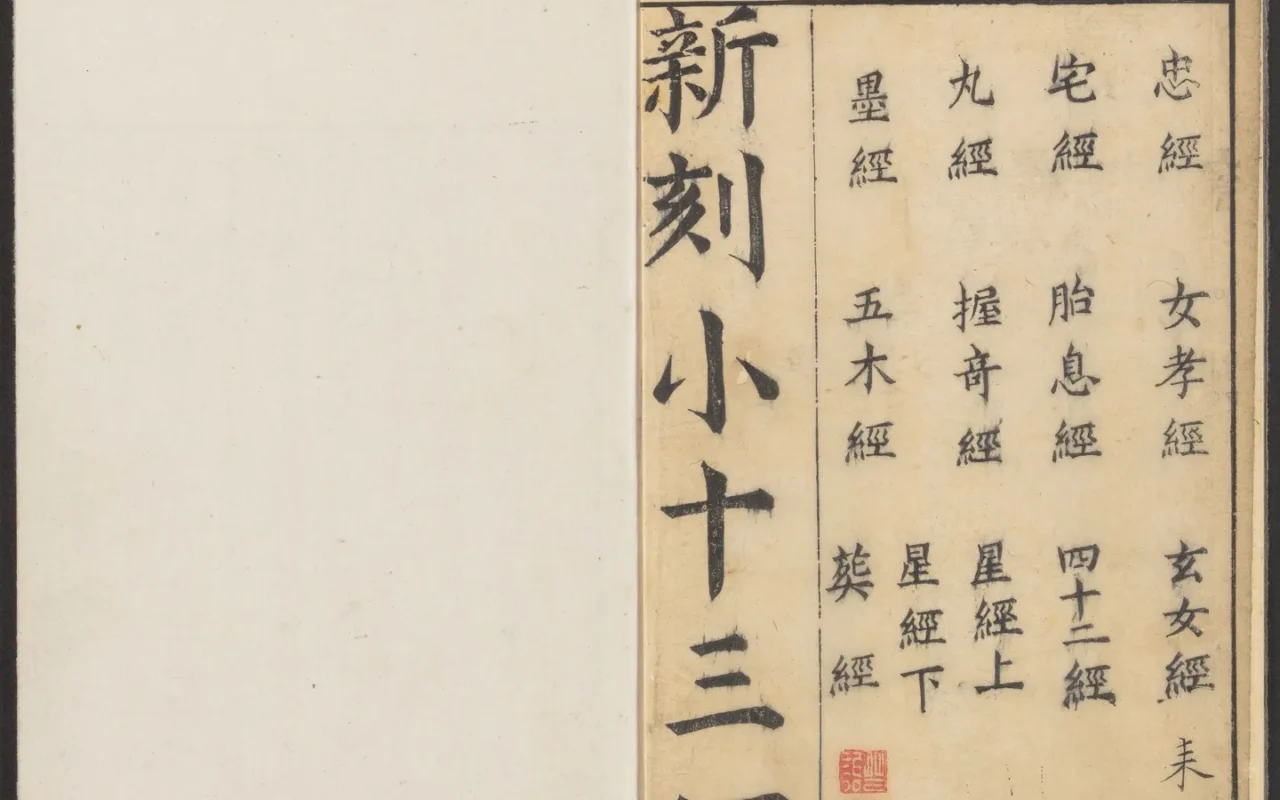 忠經 女孝經 玄女經 耒
宅經 胎息經 四十二經
丸經 握竒經 星經上
星經下
墨經 五木經 葬經
新刻小十三